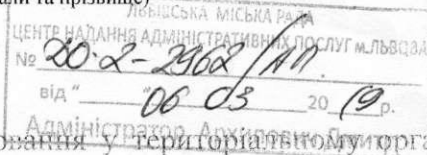 али та прізвище)
ЛЬВІВСЬКА МІСЬКА РАДА
ЦЕНТР НАДАННЯ АДМІНІСТРАТИВНИХ ПОСЛУГ м.ЛЬВОВА
№ 20.2-2962/АП.
від "06 03 2019р.
Адміністратор Архипович
овання у територіальному орга